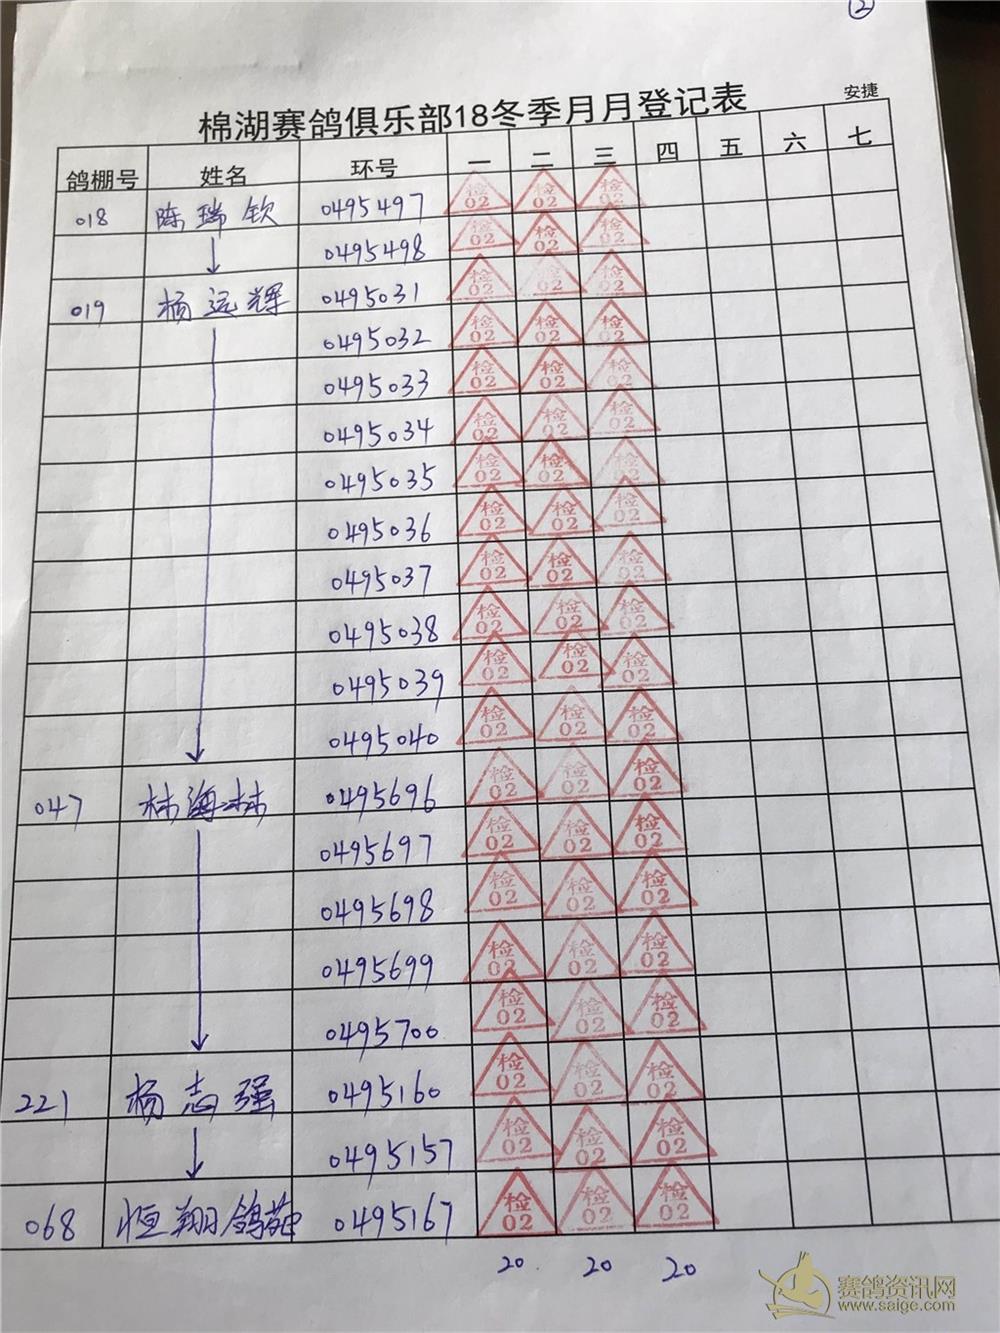 ②
棉湖赛鸽俱乐部18冬季月月登记表 安捷
鸽棚号 姓名 环号 一 二 三 四 五 六 七
018 陈瑞钦 0495497 检02 检02 检02
0495498 检02 检02 检02
019 杨远辉 0495031 检02 检02 检02
0495032 检02 检02 检02
0495033 检02 检02 检02
0495034 检02 检02 检02
0495035 检02 检02 检02
0495036 检02 检02 检02
0495037 检02 检02 检02
0495038 检02 检02 检02
0495039 检02 检02 检02
0495040 检02 检02 检02
047 林海林 0495696 检02 检02 检02
0495697 检02 检02 检02
0495698 检02 检02 检02
0495699 检02 检02 检02
0495700 检02 检02 检02
221 杨志强 0495160 检02 检02 检02
0495157 检02 检02 检02
068 恒翔鸽苑 0495167 检02 检02 检02
20 20 20
赛鸽资讯网
www.saige.com